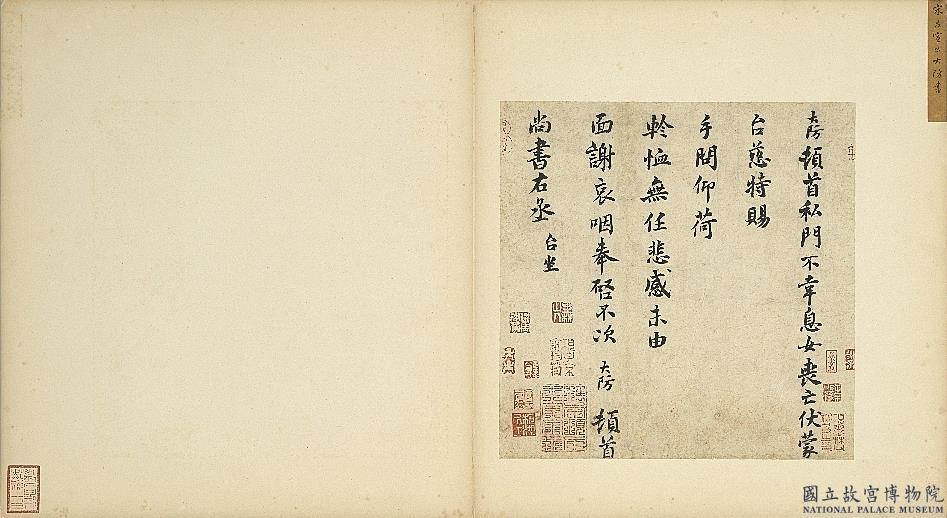 宋呂宣公大防書
大防頓首私門不幸息女喪亡伏蒙
台慈特賜
手閔仰荷
軫恤無任悲感未由
面謝哀咽奉啓不次 大防 頓首
尚書右丞 台坐
國立故宮博物院
NATIONAL PALACE MUSEUM